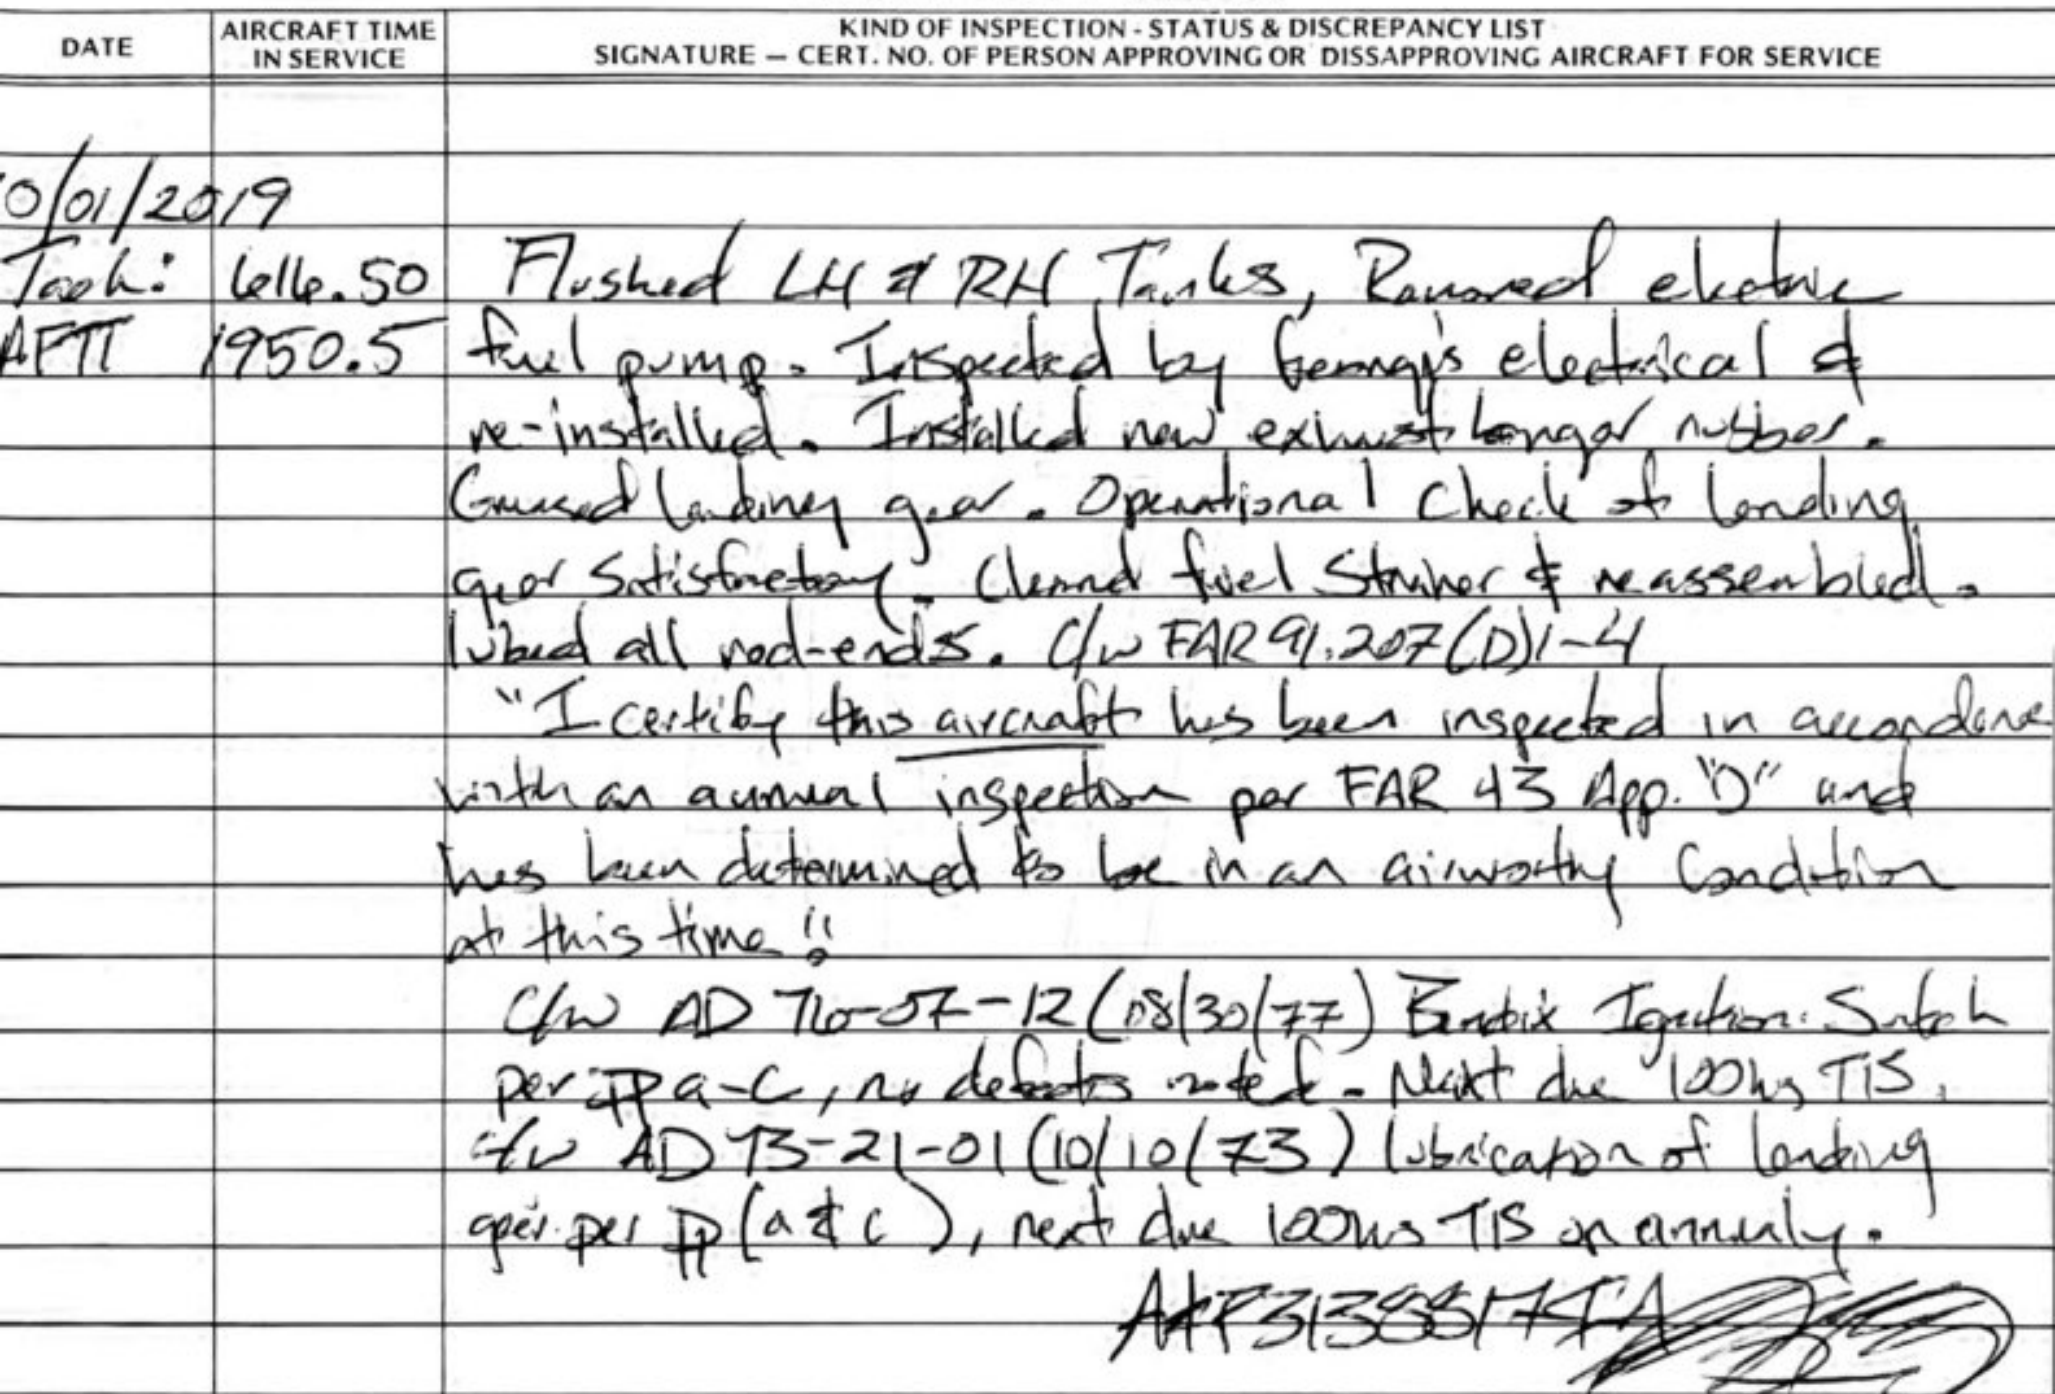 DATE
AIRCRAFT TIME
IN SERVICE
KIND OF INSPECTION - STATUS & DISCREPANCY LIST
SIGNATURE — CERT. NO. OF PERSON APPROVING OR DISSAPPROVING AIRCRAFT FOR SERVICE
0/01/2019
Tach: 616.50 Flushed LH & RH Tanks, Removed electric
AFTT 1950.5 fuel pump. Inspected by electrical &
re-installed. Installed new exhaust hanger rubber.
Greased landing gear. Operational Check of landing
gear Satisfactory. Cleaned fuel Strainer & reassembled.
lubed all rod-ends. C/W FAR 91.207(D)1-4
"I certify this aircraft has been inspected in accordance
with an annual inspection per FAR 43 App. "D" and
has been determined to be in an airworthy Condition
at this time".
C/W AD 76-07-12 (08/30/77) Bendix Ignition Switch
per pp a-c, no defects noted. Next due 100hrs TIS.
C/W AD 73-21-01 (10/10/73) lubrication of landing
gear per pp (a & c), next due 100hrs TIS or annualy.
A&P 3138817 IA